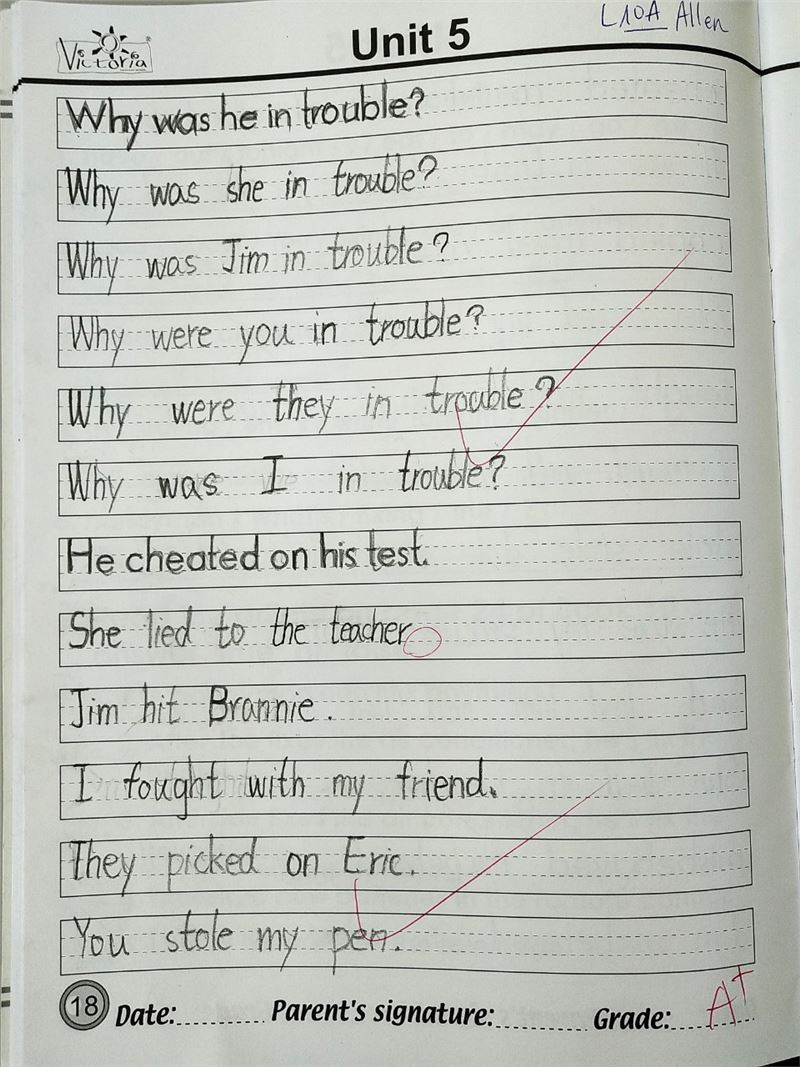 L10A Allen
Victoria
Unit 5
Why was he in trouble?
Why was she in trouble?
Why was Jim in trouble?
Why were you in trouble?
Why were they in trouble?
Why was I in trouble?
He cheated on his test.
She lied to the teacher
Jim hit Brannie.
I fought with my friend.
They picked on Eric.
You stole my pen.
18 Date: Parent's signature: Grade: A+